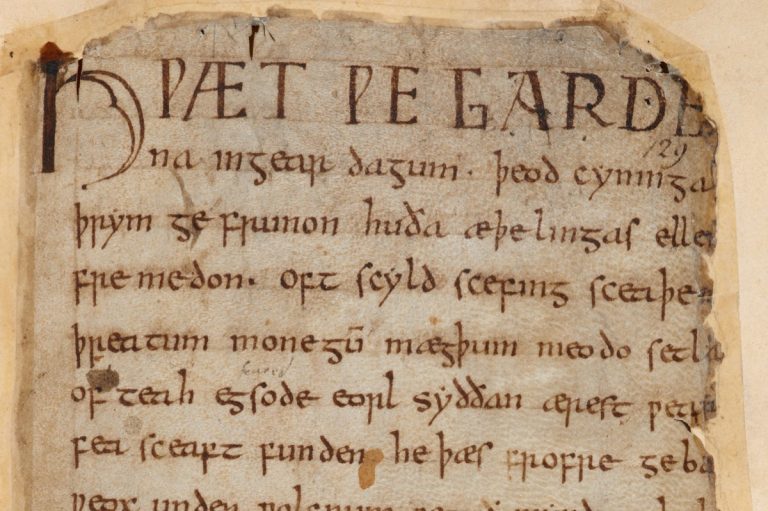 HǷÆT ǷE GARDE
129
na ingear dagum. þeod cyninga
þrym ge frunon huða æþelingas ellen
fremedon. oft scyld scefing sceaþen
þreatum monegū mægþum meodo setla
of teah egsode eorl syððan ærest ƿear
fea sceaft funden he þæs frofre geba
ƿeox under